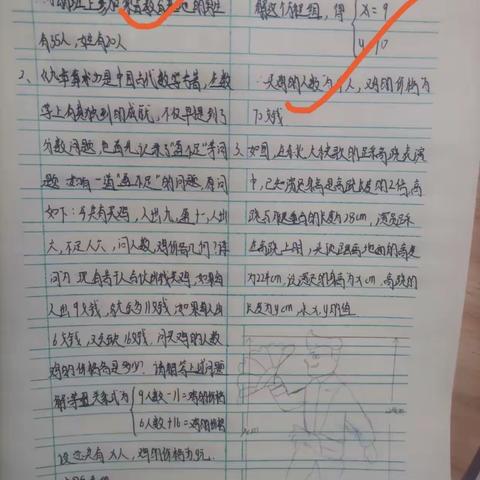 有35人，女生有20人
2、《九章算术》是中国古代数学专著，在数
学上有其独到的成就，不仅最早提到了
分数问题，也首先记录了"盈不足"等问
题，如有一道"盈不足"的问题，原问
如下：今有共买鸡，人出九，盈十一，人出
六，不足十六，问人数，鸡价各几何？译
问为：现有若干人合伙出钱买鸡，如果每人
出9文钱，就会多11文钱，如果每人出
6文钱，又会缺16文钱，问买鸡的人数
鸡的价格各是多少？请解答上述问题
解：等量关系式为 9人数-11=鸡的价格
6人数+16=鸡的价格
设总共有x人，鸡的价格为
解这个方程组，得 x=9
y=70
为
70文钱
3、如图，在
中，已知演员身高是高跷长度的2倍，高
跷与腿重合的长度为28cm，演员踩
在高跷上时，头顶距离地面的高度
为224cm，设演员的身高为xcm，高跷的
长度为ycm，求x，y的值